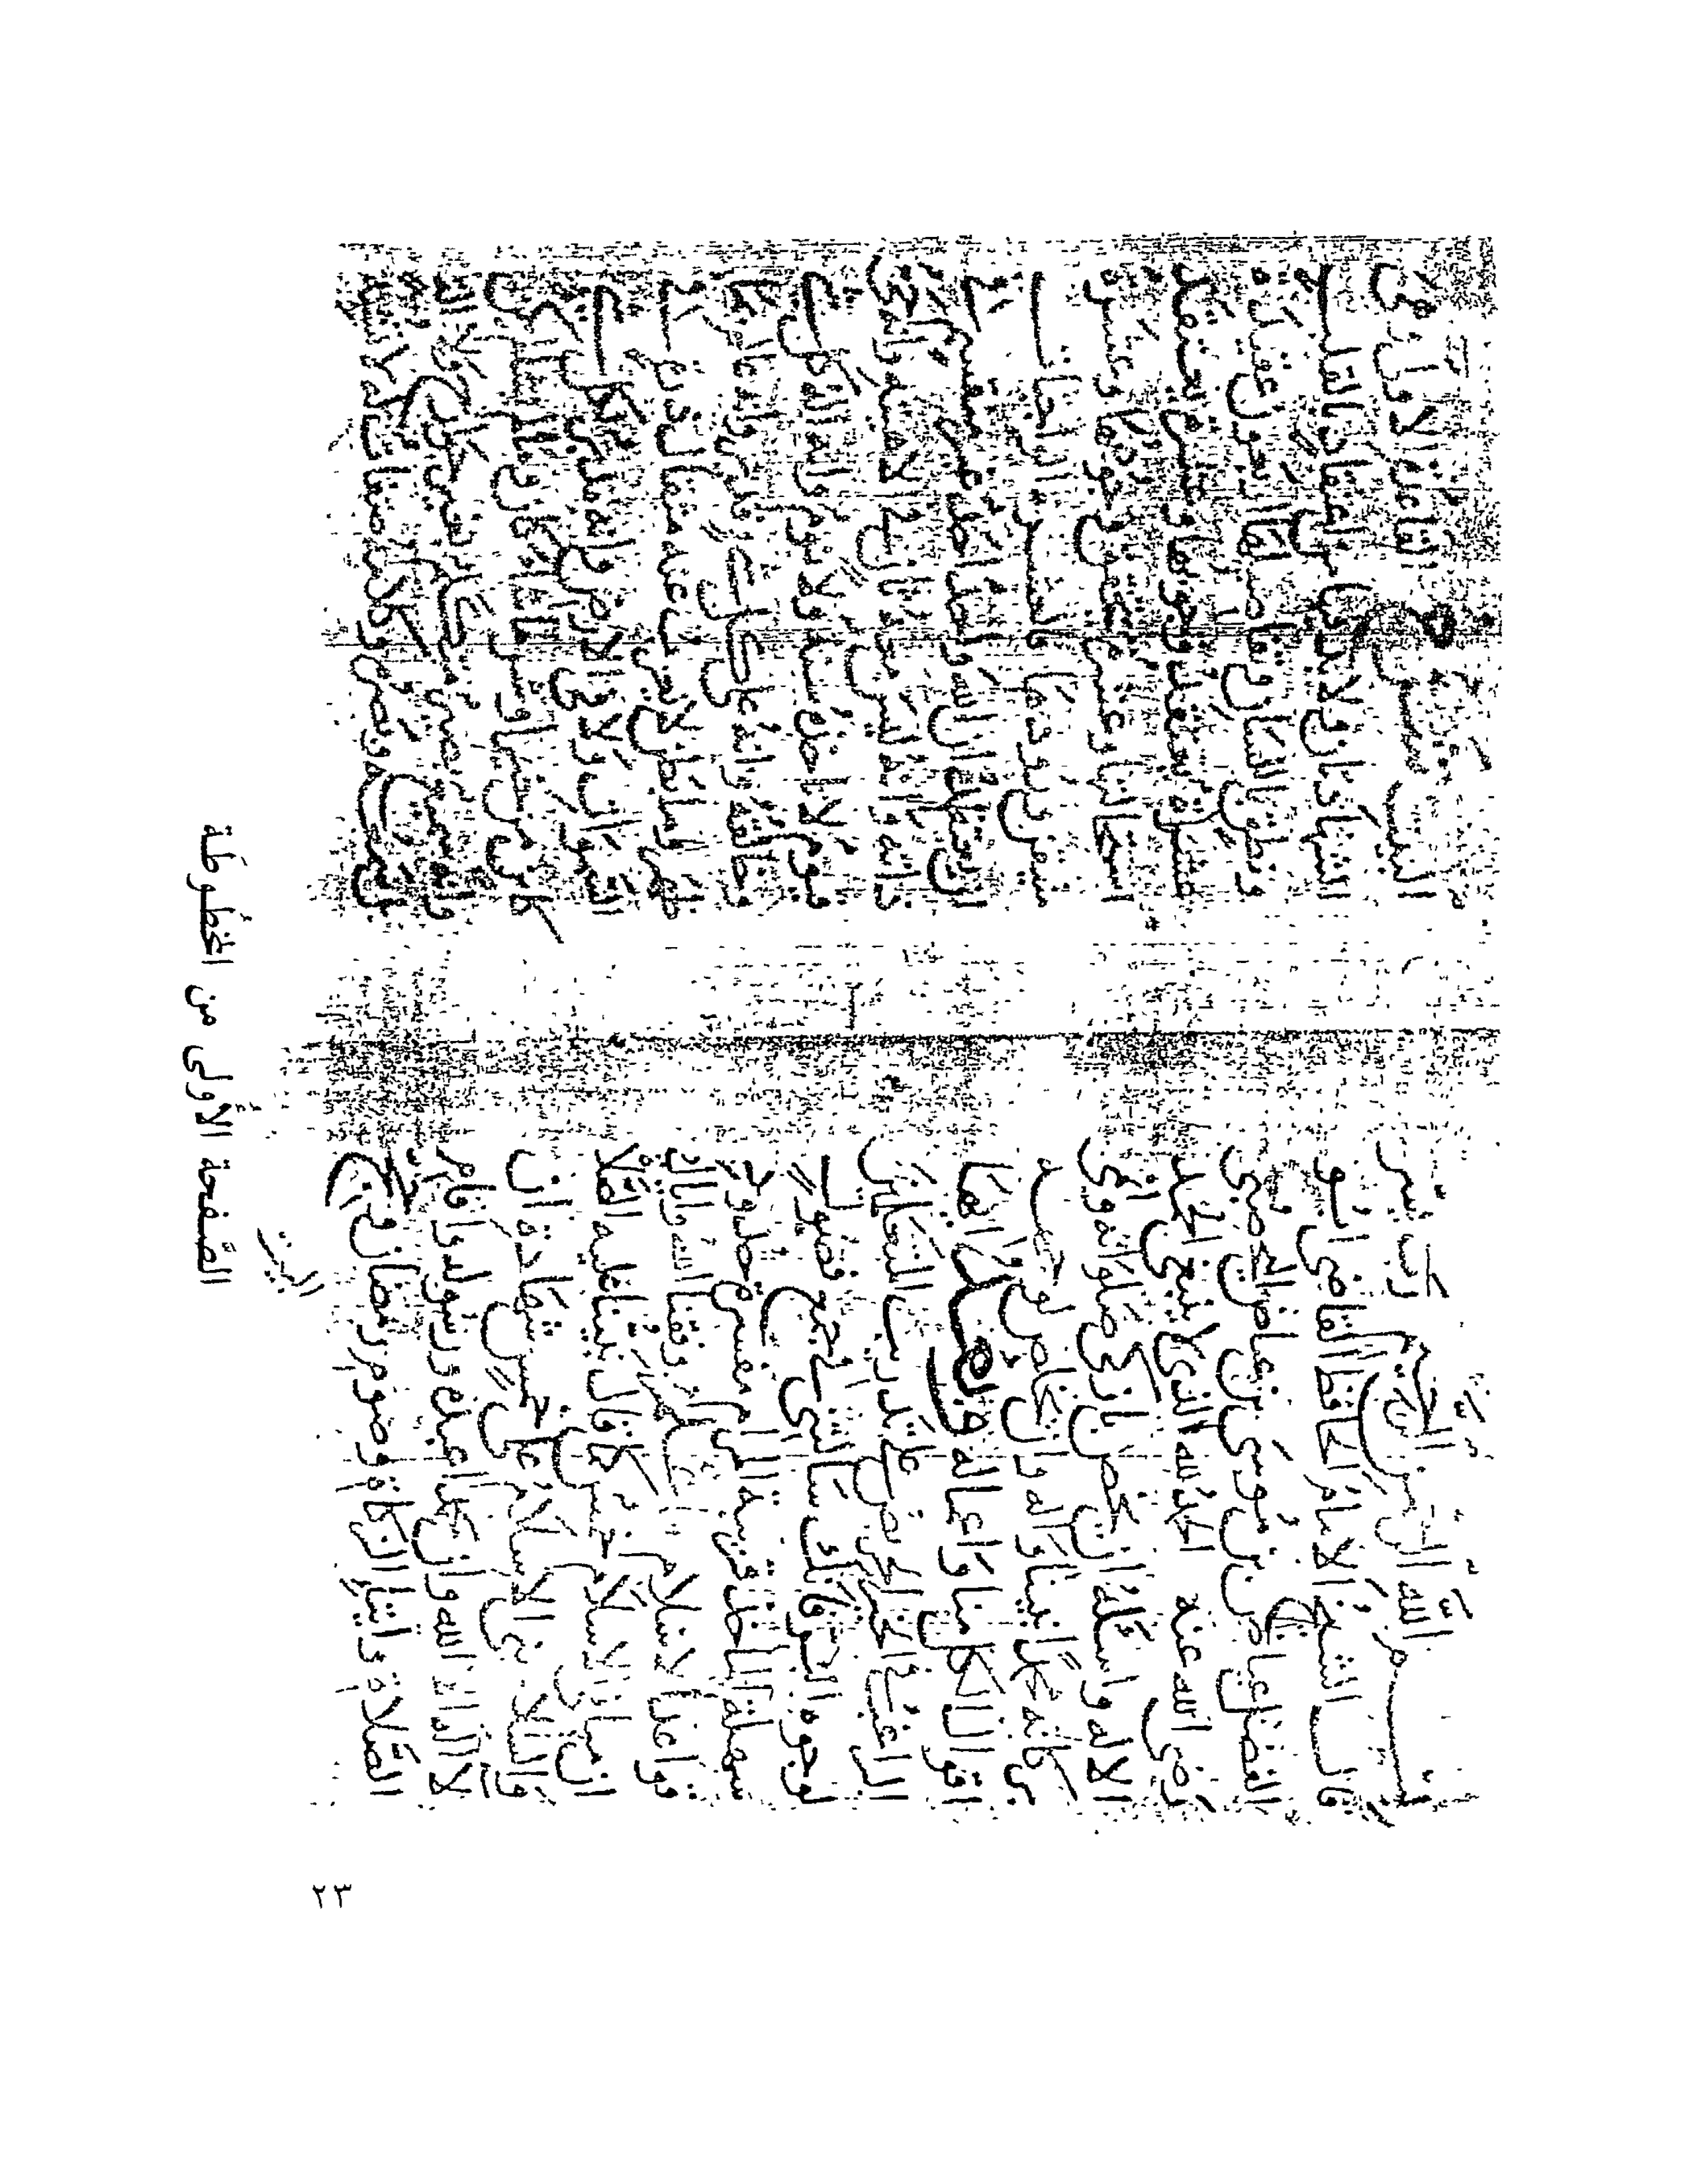 بسم الله الرحمن الرحيم رب يسر
قال الشيخ الامام الحافظ القاضي ابو
الفضل عياض بن موسى بن عياض اليحصبي
رضي الله عنه الحمد لله الذي لا ينبغي الحمد
الا له واسئله ان يخص بازكى صلواته وانمى
بركاته محمدا نبينا واله وان يخلص لوجهه
اقوال واعماله ايها
الراغب في الخير الحريص على تدريب المتعلمين
لوجوه البر فانك سالتني في جمع فصول
سهلة الماخذ قريبة المرام مفسرة حدود
قواعد الاسلام اعلم وفقنا الله واياك
ان مباني الاسلام خمس كما قال نبينا عليه الصلاة
والسلام بني الاسلام على خمس شهادة ان
لا اله الا الله وان محمدا عبده ورسوله واقام
الصلاة وايتاء الزكاة وصوم رمضان وحج
البيت
القاعدة الاولى وهي
الشهادتان ولا بد من اعتقاد بالقلب
ونطق باللسان وتفاصيلها اربعون عقيدة
عشرة يعتقد وجوبها وعشرة يعتقد
استحالتها وعشرة يتحقق وجودها وعشرة
متيقن ورودها فالعشرة الواجبات
ان يعتقد ان الله واحد غير منقسم في
ذاته وانه ليس معه ثان في الاهيته وانه حي
قيوم لا تاخذه سنة ولا نوم وانه اله كل
وخالقه وانه على كل شي قدير وانه عالم بما
ظهر وما بطن لا يعزب عنه مثقال ذرة في
السموات ولا في الارض وانه مريد لكل
كاين من خير او شر ما شا كان وما لم يشا لم يكن
وانه سميع بصير متكلم بغير جارحة ولا الة
بل سمعه وبصره وكلامه صفات له لا تشبه
الصَّفحة الأولى من المخطُوطَة
٢٣